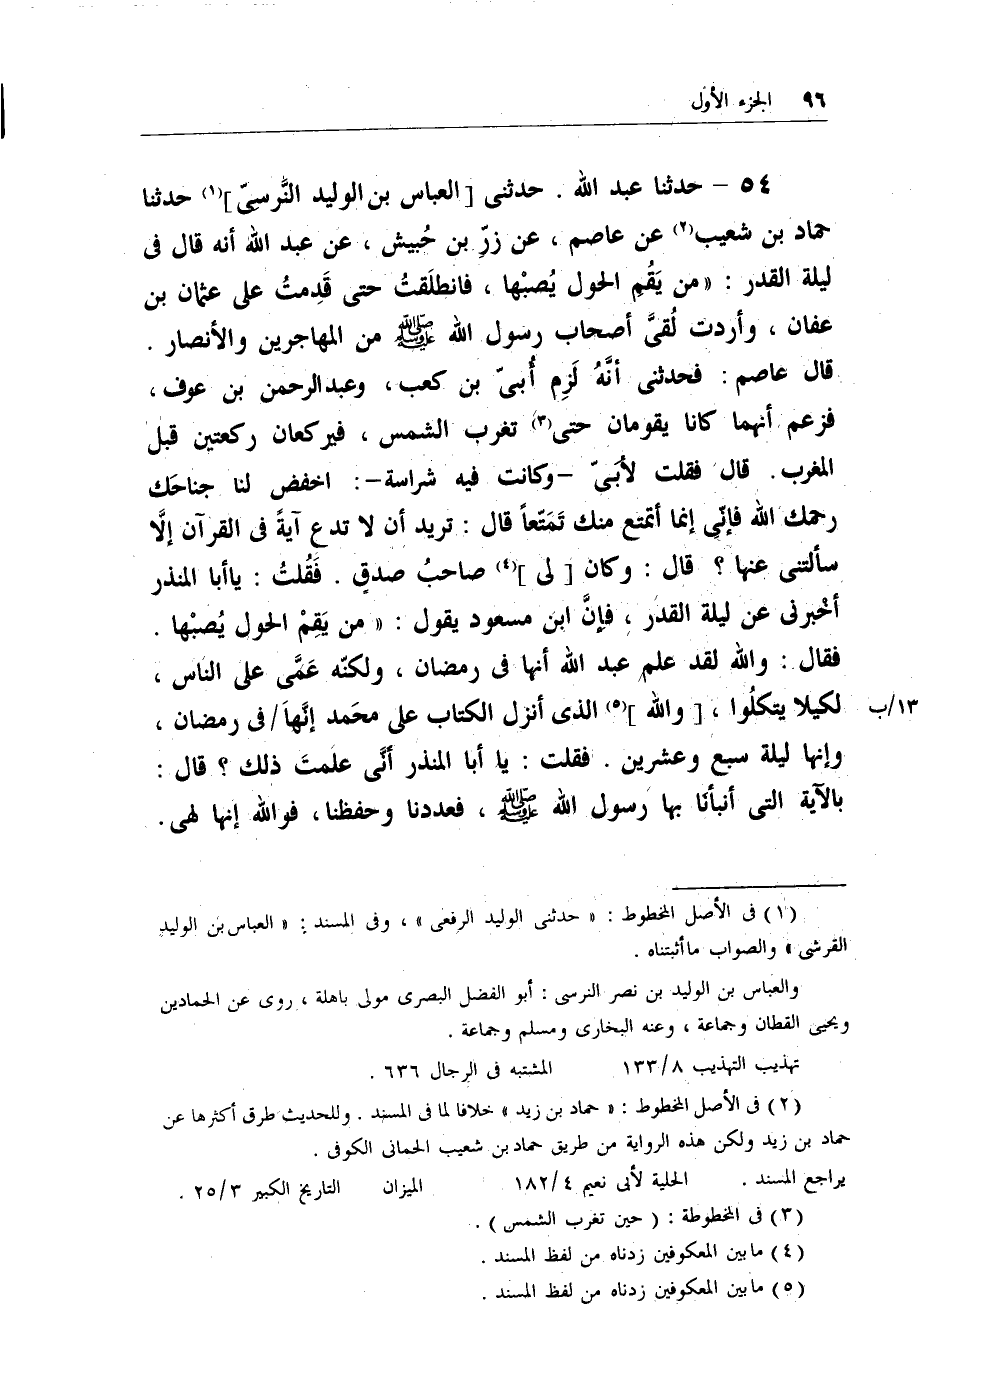 ٩٦ الجزء الأول
٥٤ – حدثنا عبد الله . حدثنى [ العباس بن الوليد النَّرسِىّ ](١) حدثنا
حماد بن شعيب(٢) عن عاصم ، عن زرِّ بن حُبيش ، عن عبد الله أنه قال فى
ليلة القدر : « من يَقُمِ الحول يُصبْها ، فانطلَقتُ حتى قَدِمتُ على عثمان بن
عفان ، وأردت لُقىَّ أصحاب رسول الله ﷺ من المهاجرين والأنصار .
قال عاصم : فحدثنى أنَّهُ لَزِم أُبىّ بن كعب ، وعبدالرحمن بن عوف ،
فزعم أنهما كانا يقومان حتى(٣) تغرب الشمس ، فيركعان ركعتين قبل
المغرب . قال فقلت لأبَىّ –وكانت فيه شراسة– : اخفض لنا جناحَك
رحمك الله فإنّى إنما أتمتع منك تَمَتّعاً قال : تريد أن لا تدع آيةً فى القرآن إلَّا
سألتنى عنها ؟ قال : وكان [ لى ](٤) صاحبُ صدقٍ . فَقُلتُ : ياأبا المنذر
أخْبرنى عن ليلة القدر ، فإنَّ ابن مسعود يقول : « من يَقِمْ الحول يُصبْها .
فقال : والله لقد علم عبد الله أنها فى رمضان ، ولكنّه عَمَّى على الناس ،
لكيلا يتكلُوا ، [ والله ](٥) الذى أنزل الكتاب على محَمد إنَّهاَ / فى رمضان ، ١٣/ب
وإنها ليلة سبع وعشرين . فقلت : يا أبا المنذر أنَّى علمتَ ذلك ؟ قال :
بالآية التى أنبأنا بها رسول الله ﷺ ، فعددنا وحفظنا ، فوالله إنها لهى .
(١) فى الأصل المخطوط : « حدثنى الوليد الرفعى » ، وفى المسند : « العباس بن الوليد
القرشى » والصواب ماأثبتناه .
والعباس بن الوليد بن نصر النرسى : أبو الفضل البصرى مولى باهلة ، روى عن الحمادين
ويحيى القطان وجماعة ، وعنه البخارى ومسلم وجماعة .
تهذيب التهذيب ١٣٣/٨ المشتبه فى الرجال ٦٣٦ .
(٢) فى الأصل المخطوط : « حماد بن زيد » خلافا لما فى المسند . وللحديث طرق أكثرها عن
حماد بن زيد ولكن هذه الرواية من طريق حماد بن شعيب الحمانى الكوفى .
يراجع المسند . الحلية لأبى نعيم ١٨٢/٤ الميزان التاريخ الكبير ٢٥/٣ .
(٣) فى المخطوطة : ( حين تغرب الشمس ) .
(٤) مابين المعكوفين زدناه من لفظ المسند .
(٥) مابين المعكوفين زدناه من لفظ المسند .